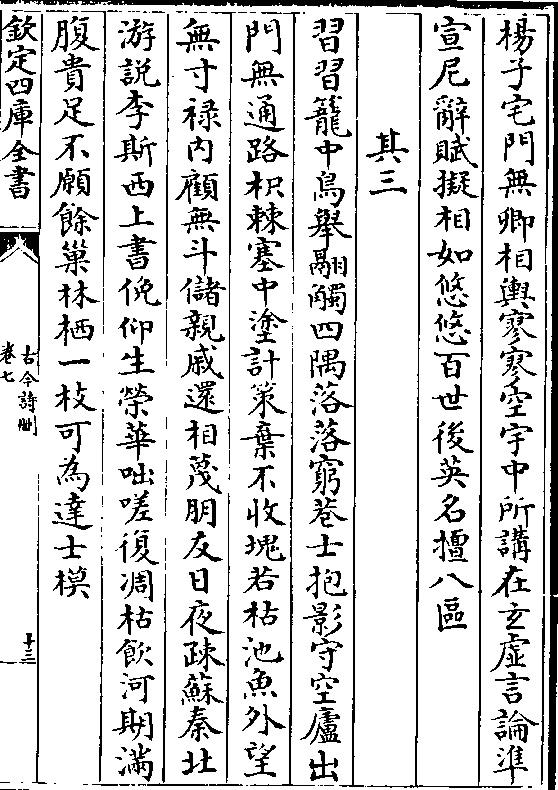 楊子宅門無卿相輿寥寥空宇中所講在玄虛言論準
宣尼辭賦擬相如悠悠百世後英名擅八區
其三
習習籠中鳥舉翮觸四隅落落窮巷士抱影守空廬出
門無通路枳棘塞中塗計策棄不收塊若枯池魚外望
無寸禄内顧無斗儲親戚還相蔑朋友日夜疎蘇秦北
游說李斯西上書俛仰生榮華咄嗟復凋枯飲河期滿
腹貴足不願餘巢林栖一枝可為達士模
欽定四庫全書
古今詩刪
卷七
十三